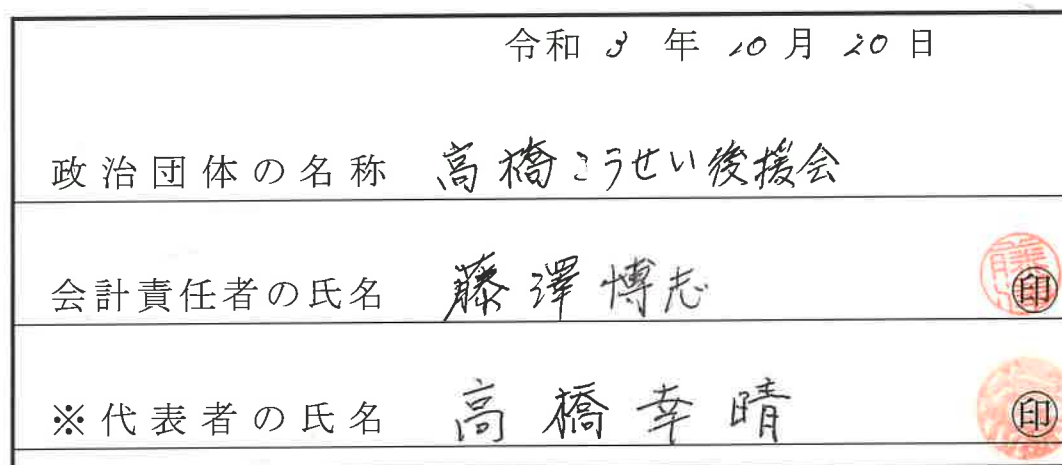 令和 3 年 10 月 20 日
政治団体の名称 高橋こうせい後援会
会計責任者の氏名 藤澤博志 ㊞
※代表者の氏名 高橋幸晴 ㊞